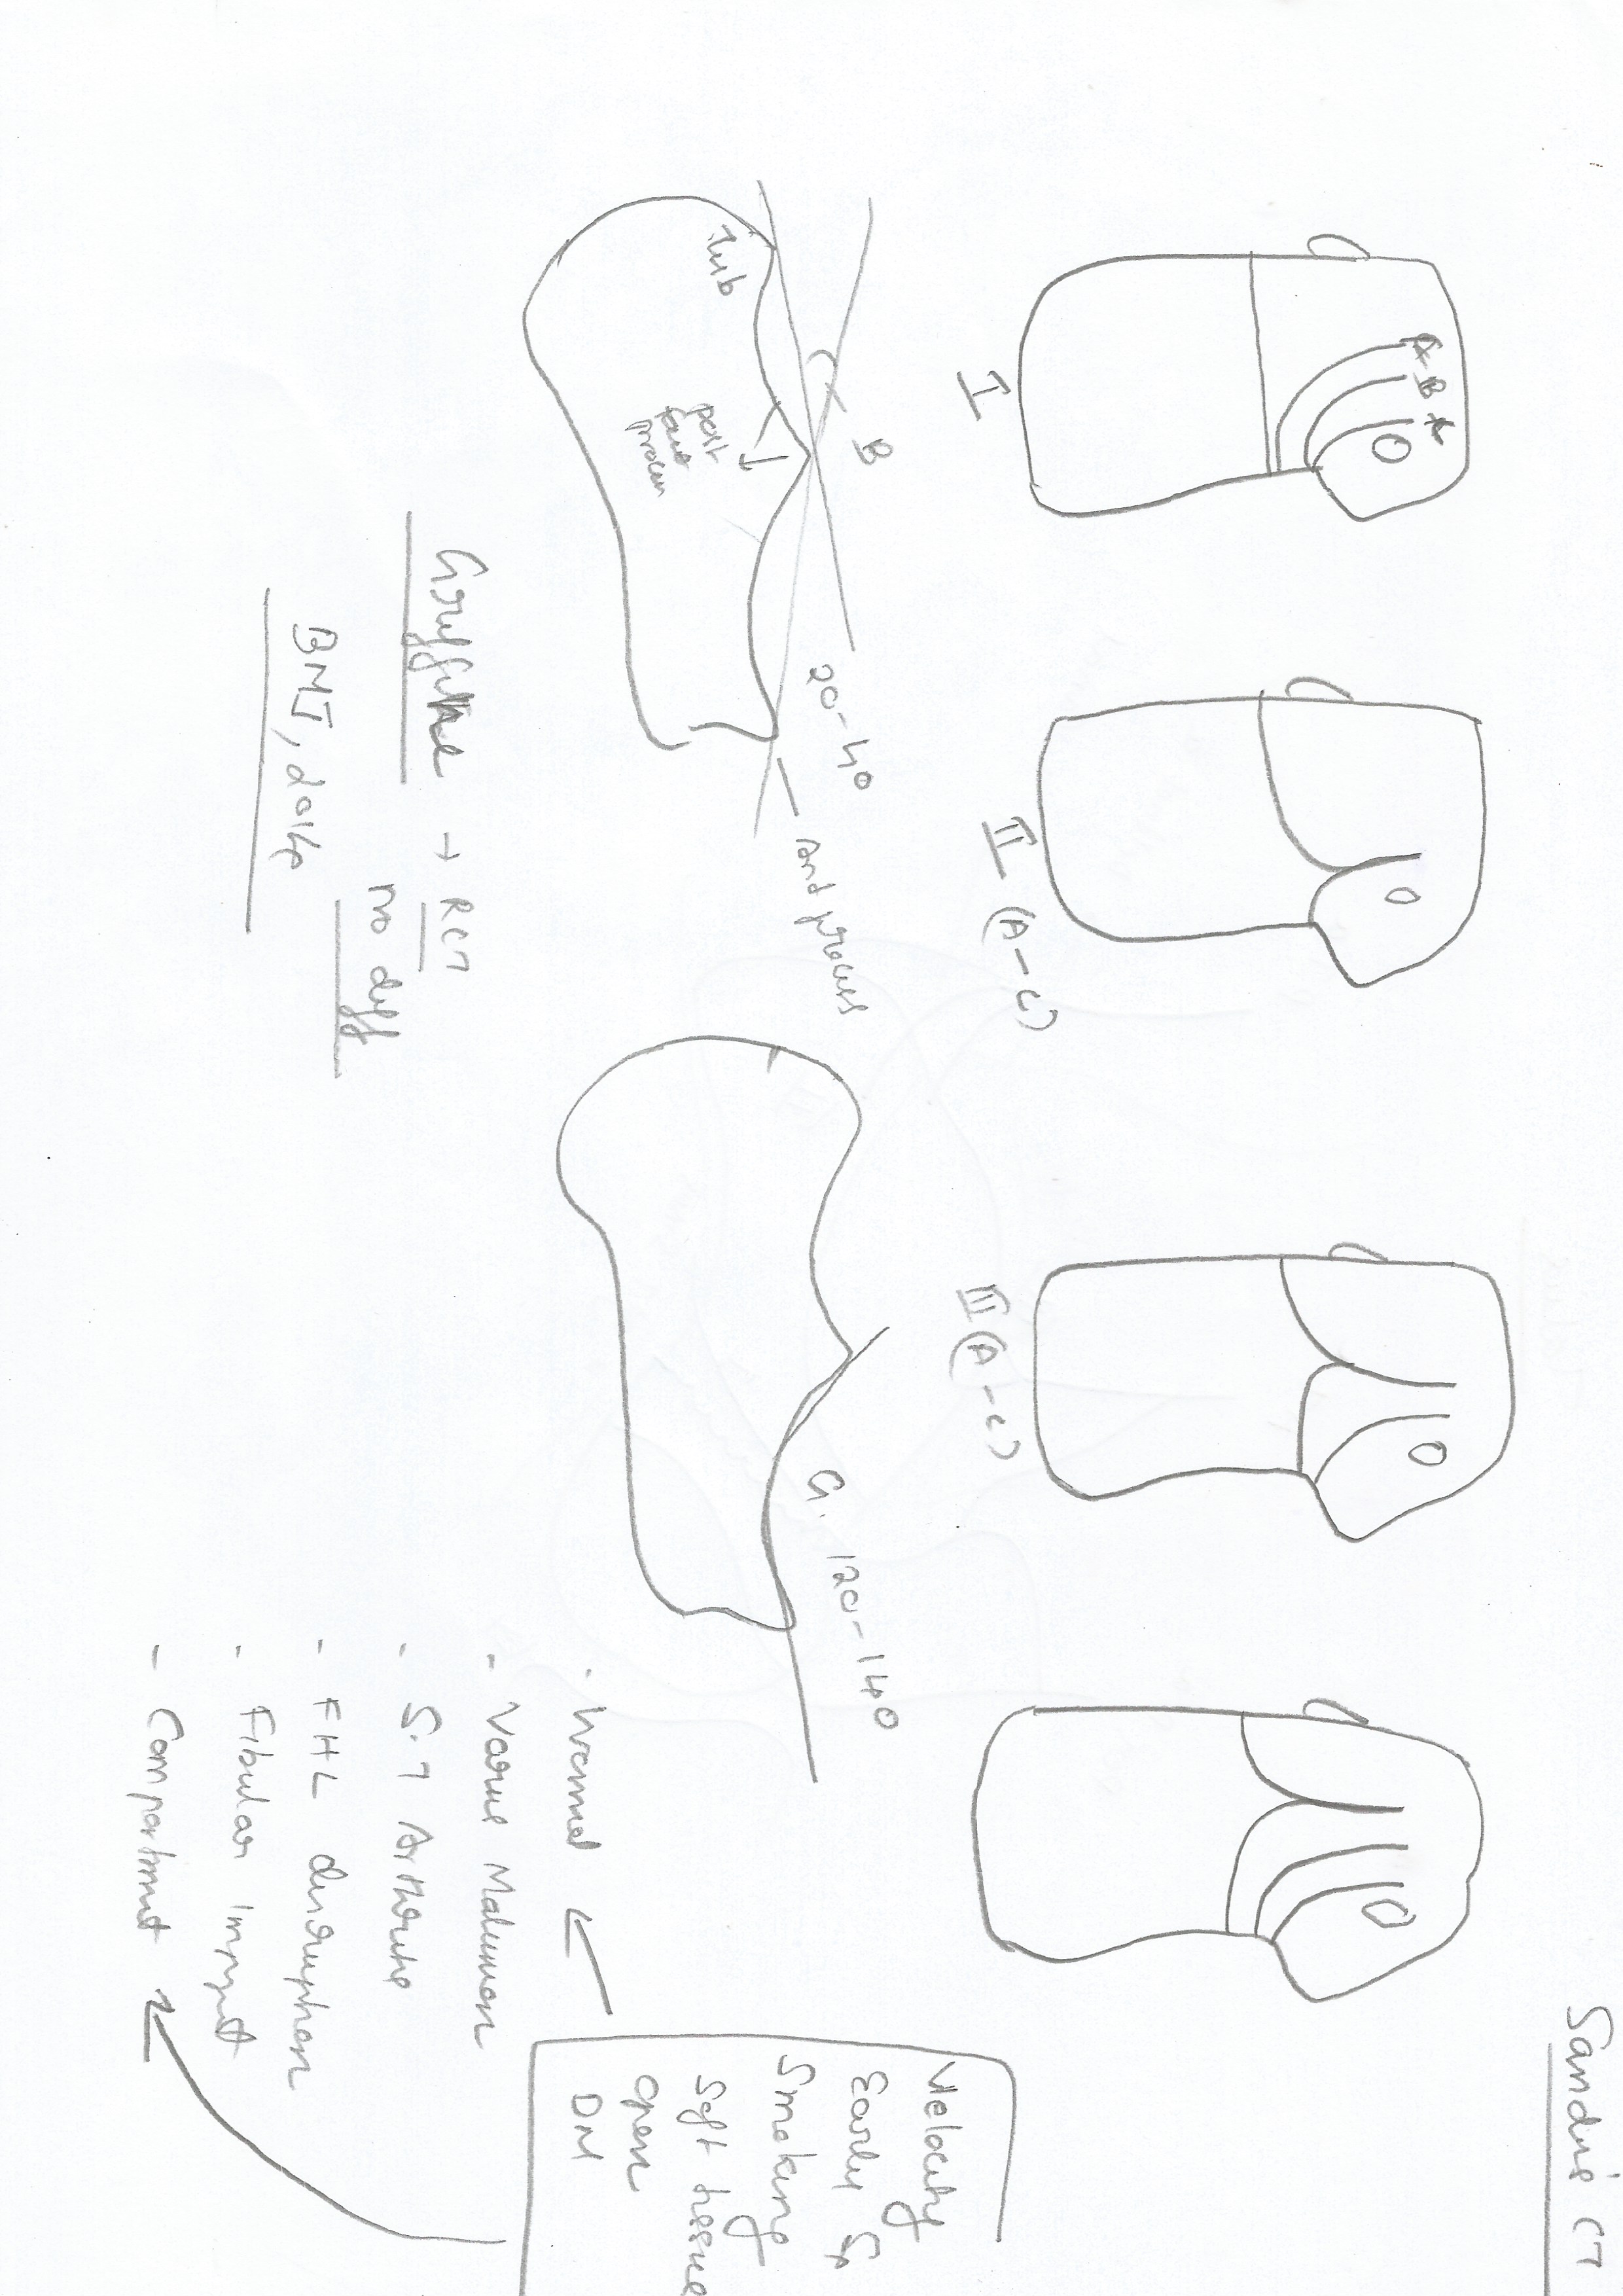 Sander's CT
A B C
I
II (A-C)
III (A-C)
B
20-40
Tub
post
facet
process
Ant process
G. 120-140
Velocity
Early Sx
Smoking
Soft tissue
open
DM
- Wound
- Varus Malunion
- S.T Arthritis
- FHL disruption
- Fibular Impgt
- Compartment
→ RCT
no diff
BMJ, 2014